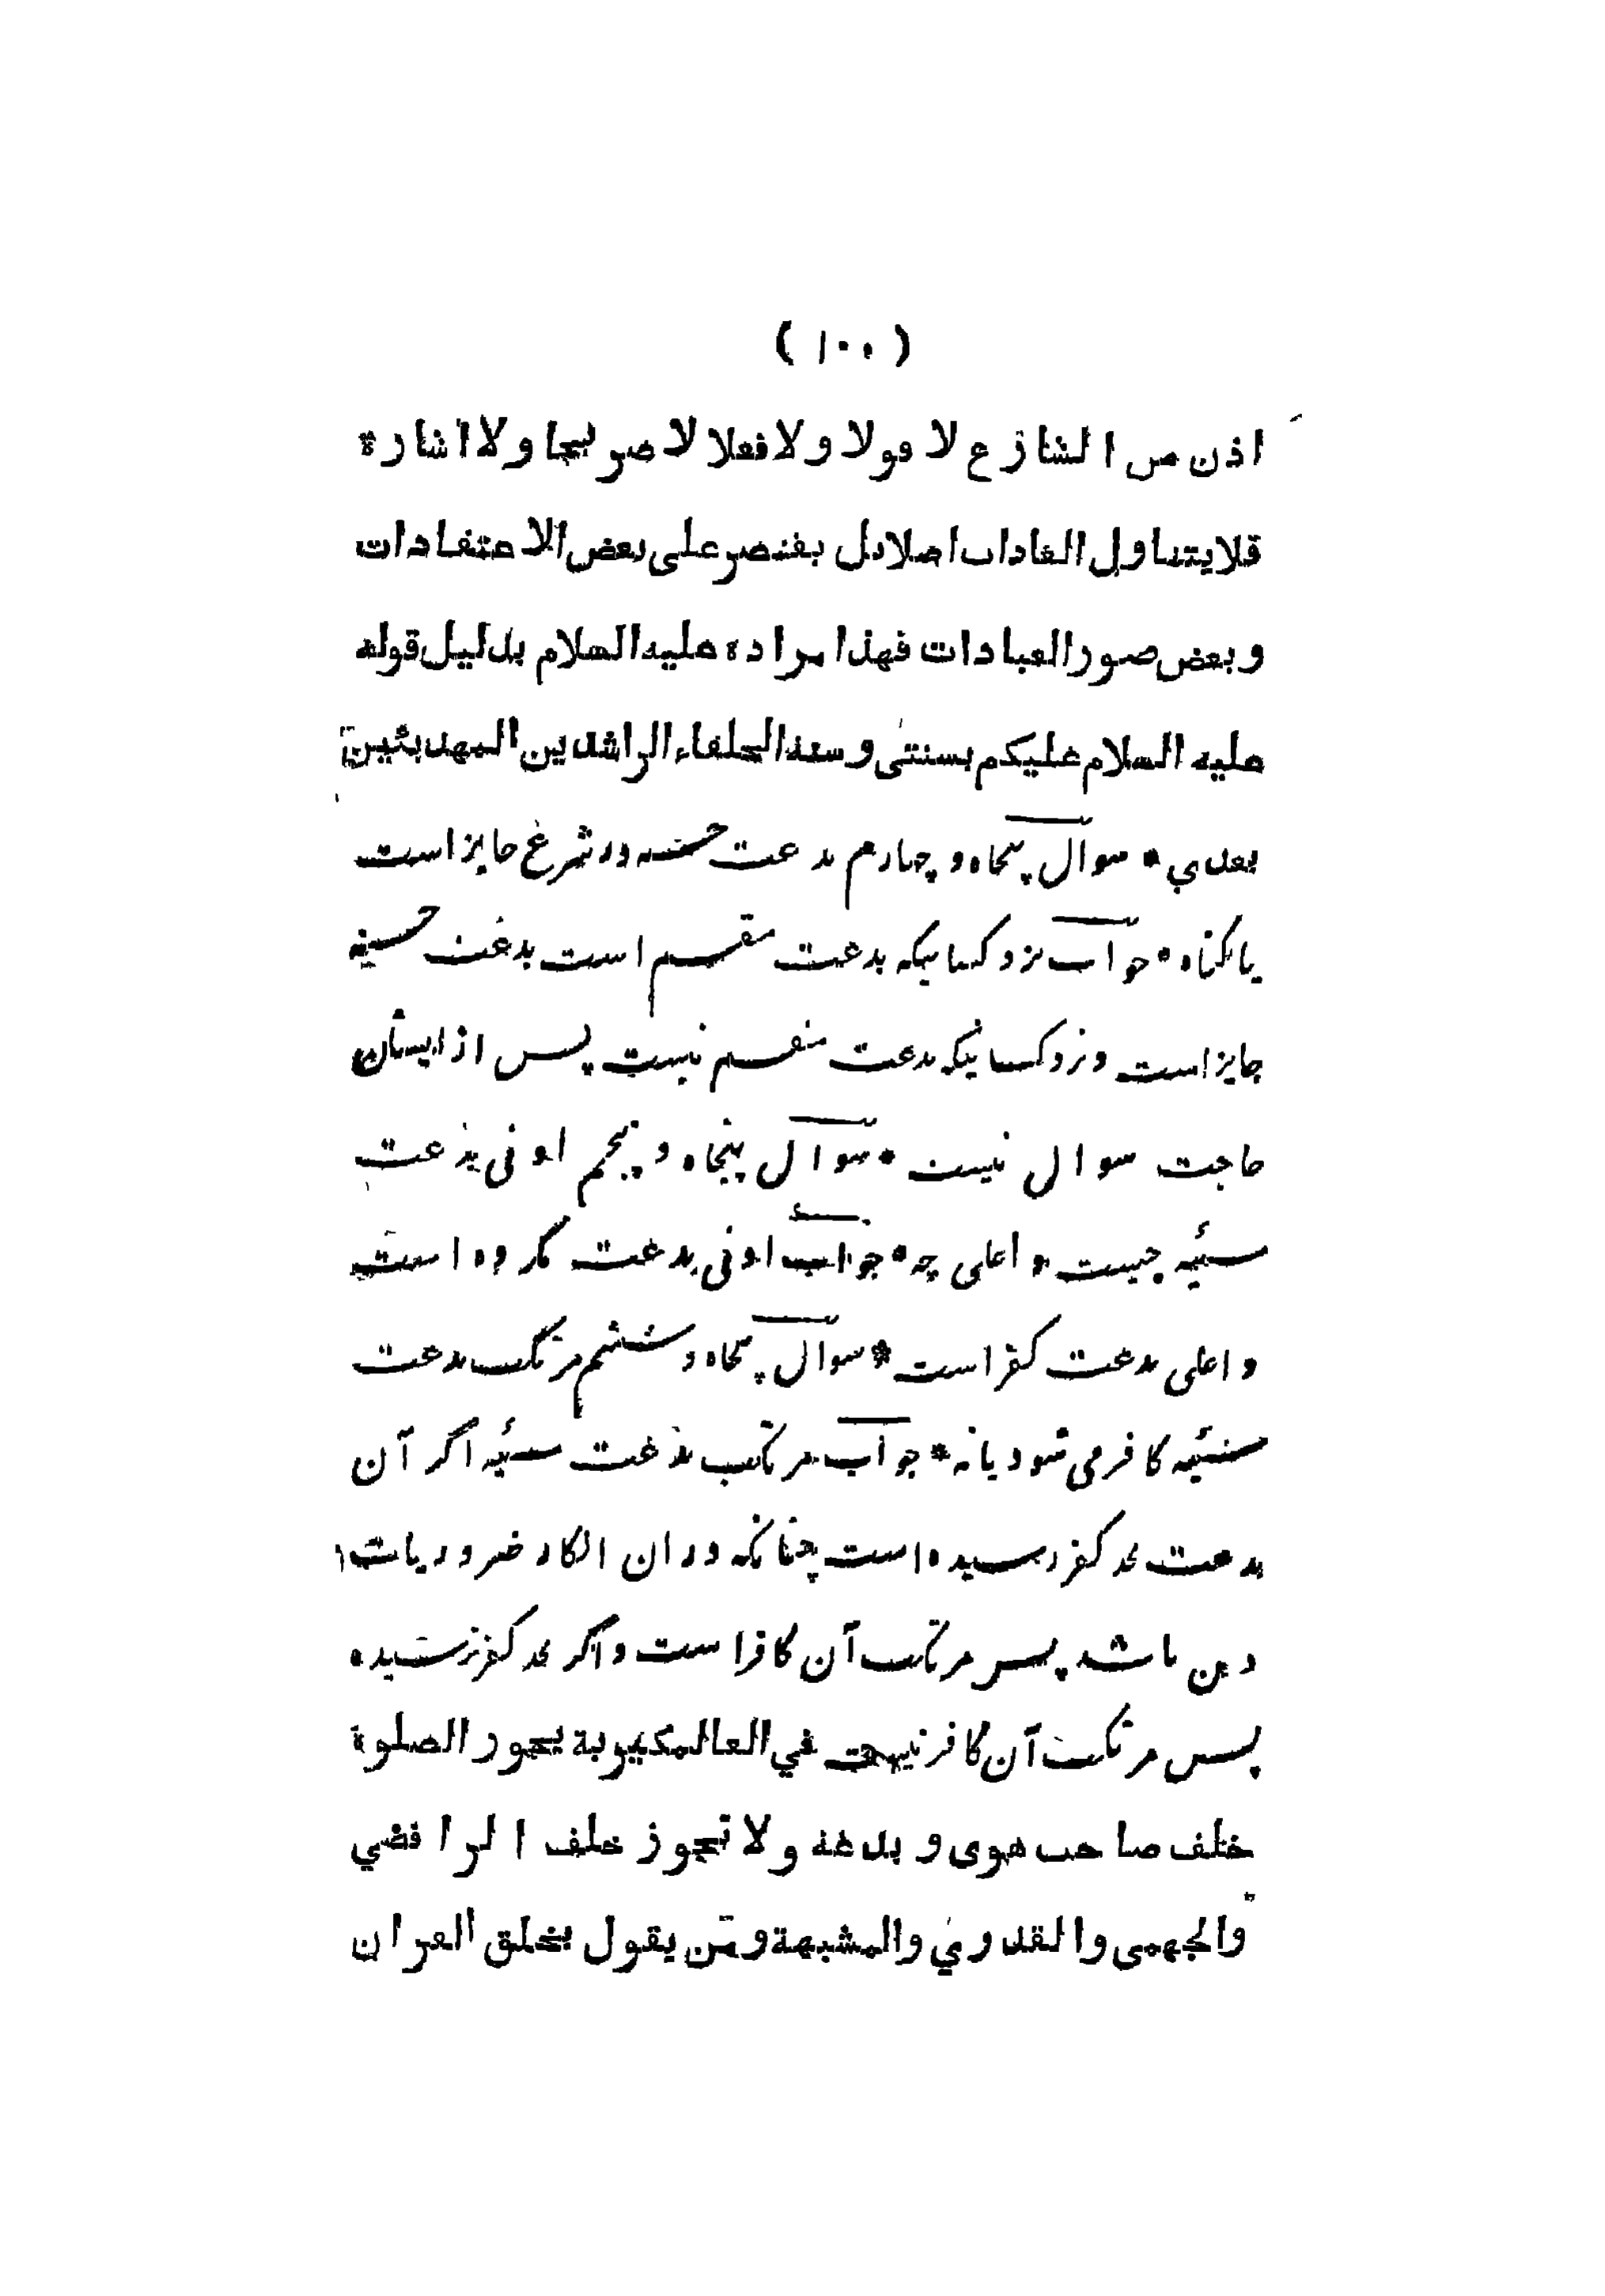 ( ١٠٠ )
اذن من الشارع لا قولا ولا فعلا لا صريحا ولا اشارة
فلا يتناول العادات اصلا بل يقتصر على بعض الاعتقادات
و بعض صور العبادات فهذا مراده عليه السلام بدليل قوله
عليه السلام عليكم بسنتى وسنة الخلفاء الراشدين المهديين
بعدي * سوال پنجاه و چهارم بدعت حسنه در شرع جايز است
يا گناه * جواب نزد كسانيكه بدعت منقسم است بدعت حسنه
جايز است و نزد كسانيكه بدعت منقسم نيست پس از ايشان
حاجت سوال نيست * سوال پنجاه و پنجم ادنى بدعت
سئيه چيست و اعلى چه * جواب ادنى بدعت مكروه است
و اعلى بدعت كفر است * سوال پنجاه و ششم مرتكب بدعت
سئيه كافر مى شود يا نه * جواب مرتكب بدعت سئيه اگر آن
بدعت بحد كفر رسيده است چنانكه در ان انكار ضروريات
دين باشد پس مرتكب آن كافر است و اگر بحد كفر نرسيده
پس مرتكب آن كافر نيست في العالمكيرية يجوز الصلوة
خلف صاحب هوى و بدعة ولا تجوز خلف الرافضي
والجهمى والقدري والمشبهة ومن يقول بخلق القران